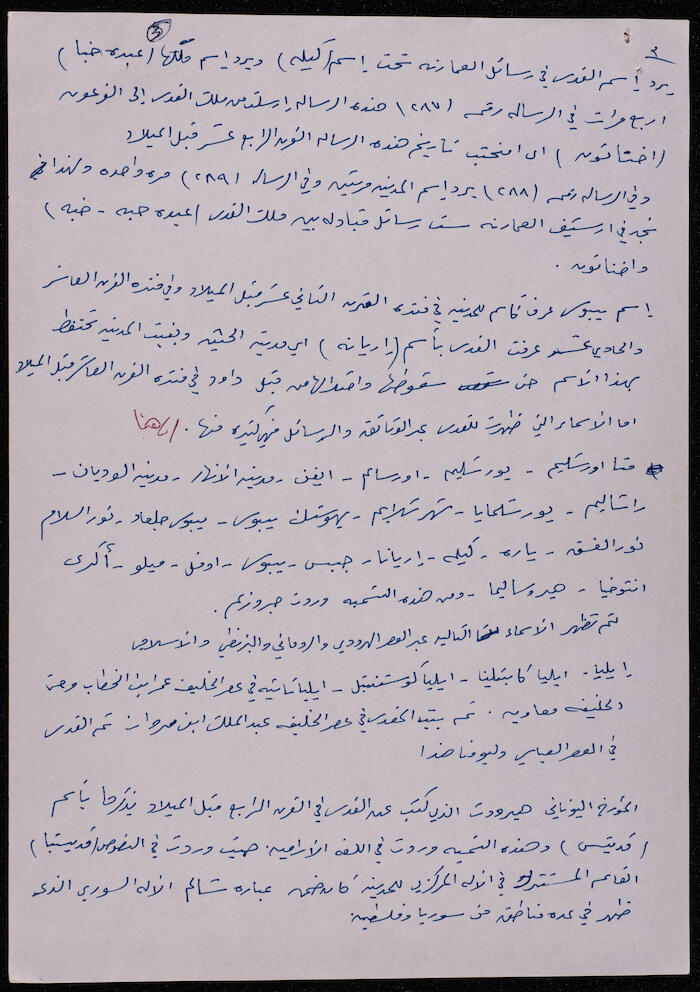 ٣
③
يرد اسم القدس في رسائل العمارنه تحت اسم (كيله) ويرد اسم ملكها (عبده خبا)
اربع مرات في الرساله رقم (٢٨٧) هذه الرساله ارسلت من ملك القدس الى الفرعون
(اخناتون) اي امنحتب تاريخ هذه الرساله القرن الرابع عشر قبل الميلاد
وفي الرساله رقم (٢٨٨) يرد اسم المدينه مرتين وفي الرساله (٢٨٩) مره واحده ولهذا
نجد في ارشيف العمارنه ست رسائل متبادله بين ملك القدس (عبده حبه - خبه)
واخناتون .
اسم يبوس عرف كاسم للمدينه في فتره القرن الثاني عشر قبل الميلاد وفي فتره القرن العاشر
والحادي عشر عرفت القدس بأسم (اريانه) اي مدينة الحثيين وبقيت المدينه تحتفظ
بهذا الاسم حتى سقوطها واحتلالها من قبل داود في فتره القرن العاشر قبل الميلاد
اما الاسماء التي ظهرت للقدس عبر الوثائق والرسائل فهي كثيره منها . اهمها
متا اورشليم - يورشليم - اورسالم - ايفن - مدينه الأنهار - مدينه الوديان -
راشاليم - يورشلمايا - شهر شلايم - يهوستك يبوس - يبوس جلعاد - نور السلام
نور الغسق - ياره - كيله - اريانا - جبس - يبوس - اوفل - ميلو - أكرى
انتوخيا - هيروساليما - ومن هذه التسميه وردت جيروزلم .
ثم تظهر الاسماء التاليه عبر العصر الهيرودي والروماني والبيزنطي والاسلامي
ايليا - ايليا كابتلينا - ايليا كونستنتبل - ايليا ثانيه في عصر الخليفه عمر ابن الخطاب وحتى
الخليفه معاويه . ثم بيت المقدس في عصر الخليفه عبد الملك ابن مروان ثم القدس
في العصر العباسي وليومنا هذا
المؤرخ اليوناني هيرودت الذي كتب عن القدس في القرن الرابع قبل الميلاد يذكرها بأسم
(قديتس) وهذه التسميه وردت في اللغه الأراميه حيث وردت في النصوص (قديستا)
القاسم المشترك في الأله المركزي للمدينه كان ضمن عباره شالم الأله السوري الذي
ظهر في عده مناطق من سوريا وفلسطين